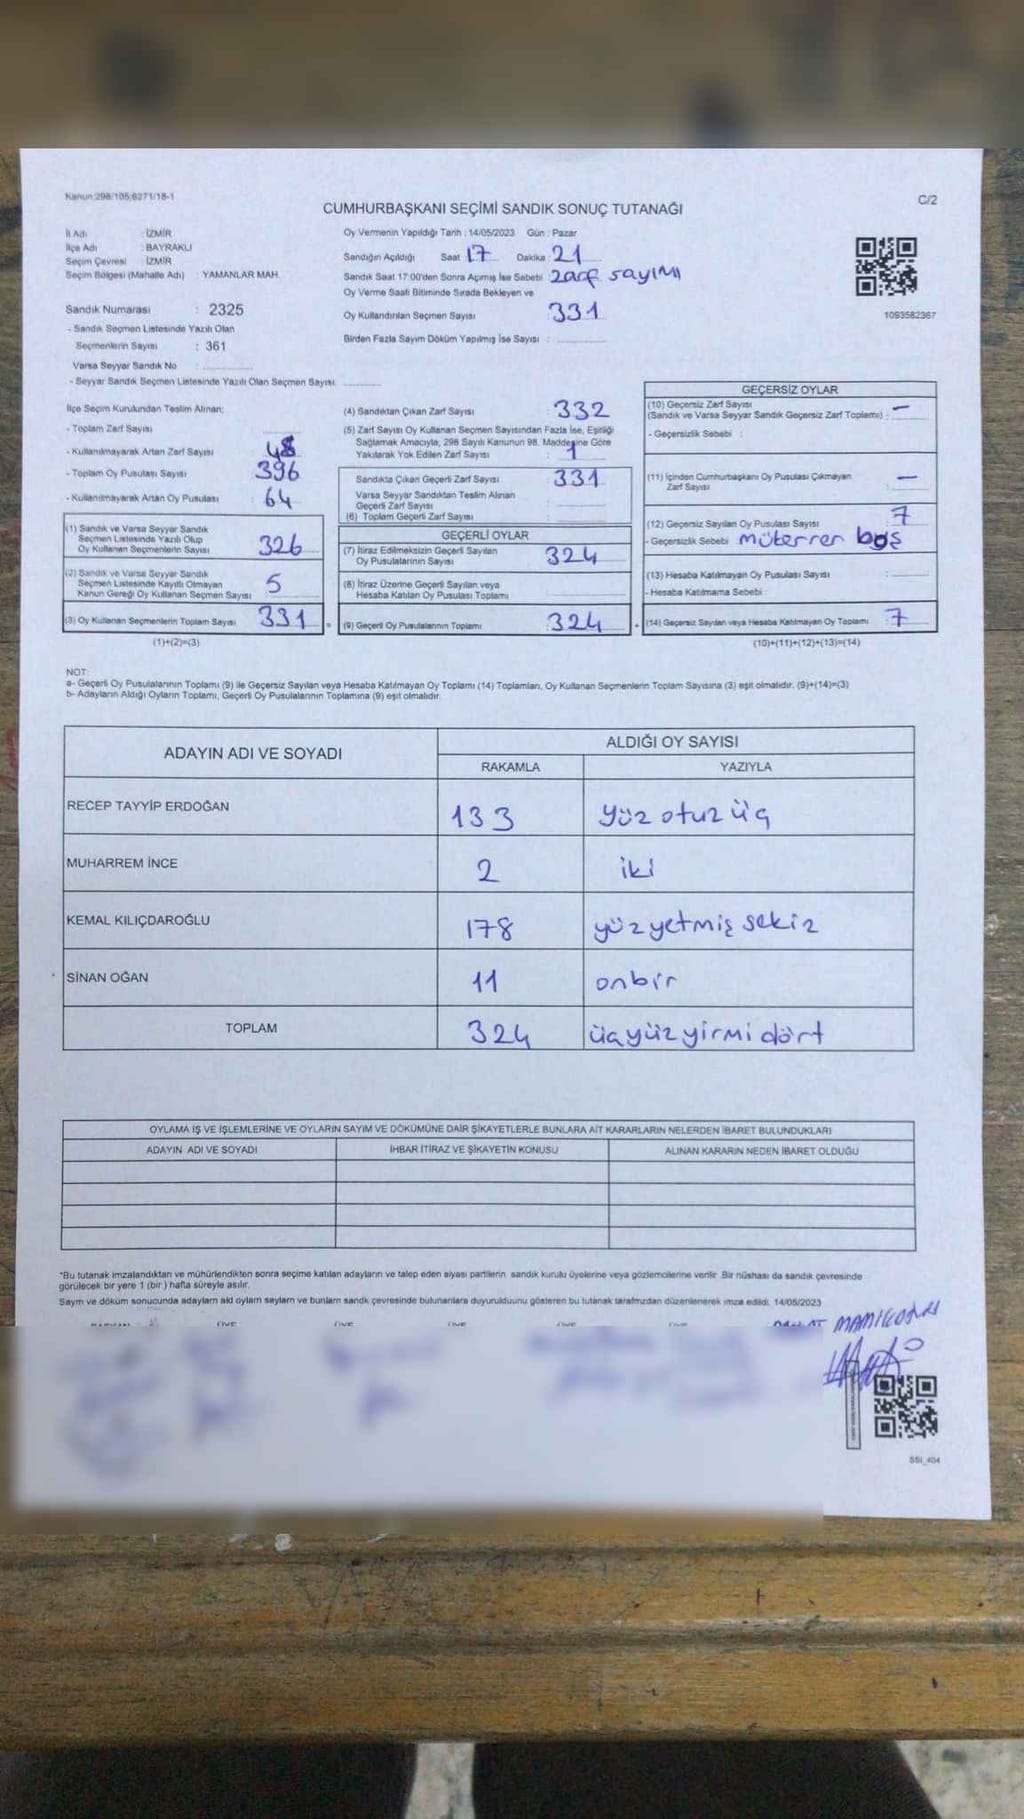 Kanun:298/105;6271/18-1
C/2
CUMHURBAŞKANI SEÇİMİ SANDIK SONUÇ TUTANAĞI
İl Adı : İZMİR
İlçe Adı : BAYRAKLI
Seçim Çevresi : İZMİR
Seçim Bölgesi (Mahalle Adı) : YAMANLAR MAH.
Sandık Numarası : 2325
- Sandık Seçmen Listesinde Yazılı Olan
Seçmenlerin Sayısı : 361
Varsa Seyyar Sandık No :
- Seyyar Sandık Seçmen Listesinde Yazılı Olan Seçmen Sayısı:
Oy Vermenin Yapıldığı Tarih : 14/05/2023 Gün : Pazar
Sandığın Açıldığı Saat : 17 Dakika : 21
Sandık Saat 17:00'den Sonra Açılmış İse Sebebi : zarf sayımı
Oy Verme Saati Bitiminde Sırada Bekleyen ve
Oy Kullandırılan Seçmen Sayısı : 331
Birden Fazla Sayım Döküm Yapılmış İse Sayısı :
1093582367
İlçe Seçim Kurulundan Teslim Alınan;
- Toplam Zarf Sayısı
- Kullanılmayarak Artan Zarf Sayısı 48
- Toplam Oy Pusulası Sayısı 396
- Kullanılmayarak Artan Oy Pusulası 64
(1) Sandık ve Varsa Seyyar Sandık
Seçmen Listesinde Yazılı Olup
Oy Kullanan Seçmenlerin Sayısı 326
(2) Sandık ve Varsa Seyyar Sandık
Seçmen Listesinde Kayıtlı Olmayan
Kanun Gereği Oy Kullanan Seçmen Sayısı 5
(3) Oy Kullanan Seçmenlerin Toplam Sayısı 331
(1)+(2)=(3)
(4) Sandıktan Çıkan Zarf Sayısı : 332
(5) Zarf Sayısı Oy Kullanan Seçmen Sayısından Fazla İse, Eşitliği
Sağlamak Amacıyla, 298 Sayılı Kanunun 98. Maddesine Göre
Yakılarak Yok Edilen Zarf Sayısı : 1
Sandıkta Çıkan Geçerli Zarf Sayısı : 331
Varsa Seyyar Sandıktan Teslim Alınan
Geçerli Zarf Sayısı
(6) Toplam Geçerli Zarf Sayısı
GEÇERLİ OYLAR
(7) İtiraz Edilmeksizin Geçerli Sayılan
Oy Pusulalarının Sayısı 324
(8) İtiraz Üzerine Geçerli Sayılan veya
Hesaba Katılan Oy Pusulası Toplamı
(9) Geçerli Oy Pusulalarının Toplamı 324
GEÇERSİZ OYLAR
(10) Geçersiz Zarf Sayısı
(Sandık ve Varsa Seyyar Sandık Geçersiz Zarf Toplamı) : -
- Geçersizlik Sebebi :
(11) İçinden Cumhurbaşkanı Oy Pusulası Çıkmayan
Zarf Sayısı -
(12) Geçersiz Sayılan Oy Pusulası Sayısı : 7
- Geçersizlik Sebebi : müterrer boş
(13) Hesaba Katılmayan Oy Pusulası Sayısı :
- Hesaba Katılmama Sebebi :
(14) Geçersiz Sayılan veya Hesaba Katılmayan Oy Toplamı : 7
(10)+(11)+(12)+(13)=(14)
NOT:
a- Geçerli Oy Pusulalarının Toplamı (9) ile Geçersiz Sayılan veya Hesaba Katılmayan Oy Toplamı (14) Toplamları, Oy Kullanan Seçmenlerin Toplam Sayısına (3) eşit olmalıdır. (9)+(14)=(3)
b- Adayların Aldığı Oyların Toplamı, Geçerli Oy Pusulalarının Toplamına (9) eşit olmalıdır.
ADAYIN ADI VE SOYADI
ALDIĞI OY SAYISI
RAKAMLA YAZIYLA
RECEP TAYYİP ERDOĞAN 133 yüz otuz üç
MUHARREM İNCE 2 iki
KEMAL KILIÇDAROĞLU 178 yüz yetmiş sekiz
SİNAN OĞAN 11 onbir
TOPLAM 324 üçyüz yirmi dört
OYLAMA İŞ VE İŞLEMLERİNE VE OYLARIN SAYIM VE DÖKÜMÜNE DAİR ŞİKAYETLERLE BUNLARA AİT KARARLARIN NELERDEN İBARET BULUNDUKLARI
ADAYIN ADI VE SOYADI İHBAR İTİRAZ VE ŞİKAYETİN KONUSU ALINAN KARARIN NEDEN İBARET OLDUĞU
*Bu tutanak imzalandıktan ve mühürlendikten sonra seçime katılan adayların ve talep eden siyasi partilerin sandık kurulu üyelerine veya gözlemcilerine verilir. Bir nüshası da sandık çevresinde
görülecek bir yere 1 (bir) hafta süreyle asılır.
Sayım ve döküm sonucunda adayların aldı oyların sayıların ve bunların sandık çevresinde bulunanlara duyurulduunu gösteren bu tutanak tarafımızdan düzenlenerek imza edildi. 14/05/2023
SSI_404